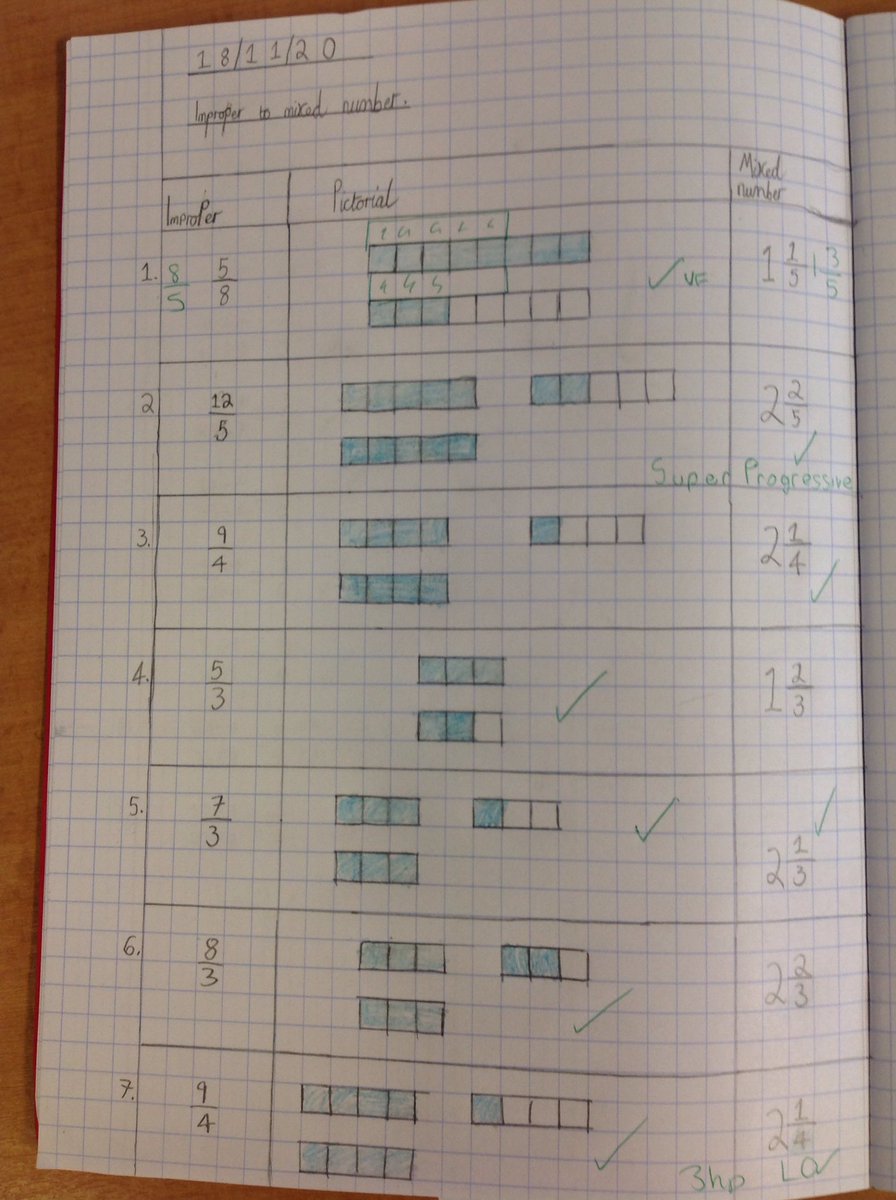 18/11/20
Improper to mixed number.
Improper Pictorial Mixed number
1. 8/5 5/8 VF 1 1/5 1 3/5
2 12/5 2 2/5
Super Progressive
3. 9/4 2 1/4
4. 5/3 1 2/3
5. 7/3 2 1/3
6. 8/3 2 2/3
7. 9/4 2 1/4
3hp